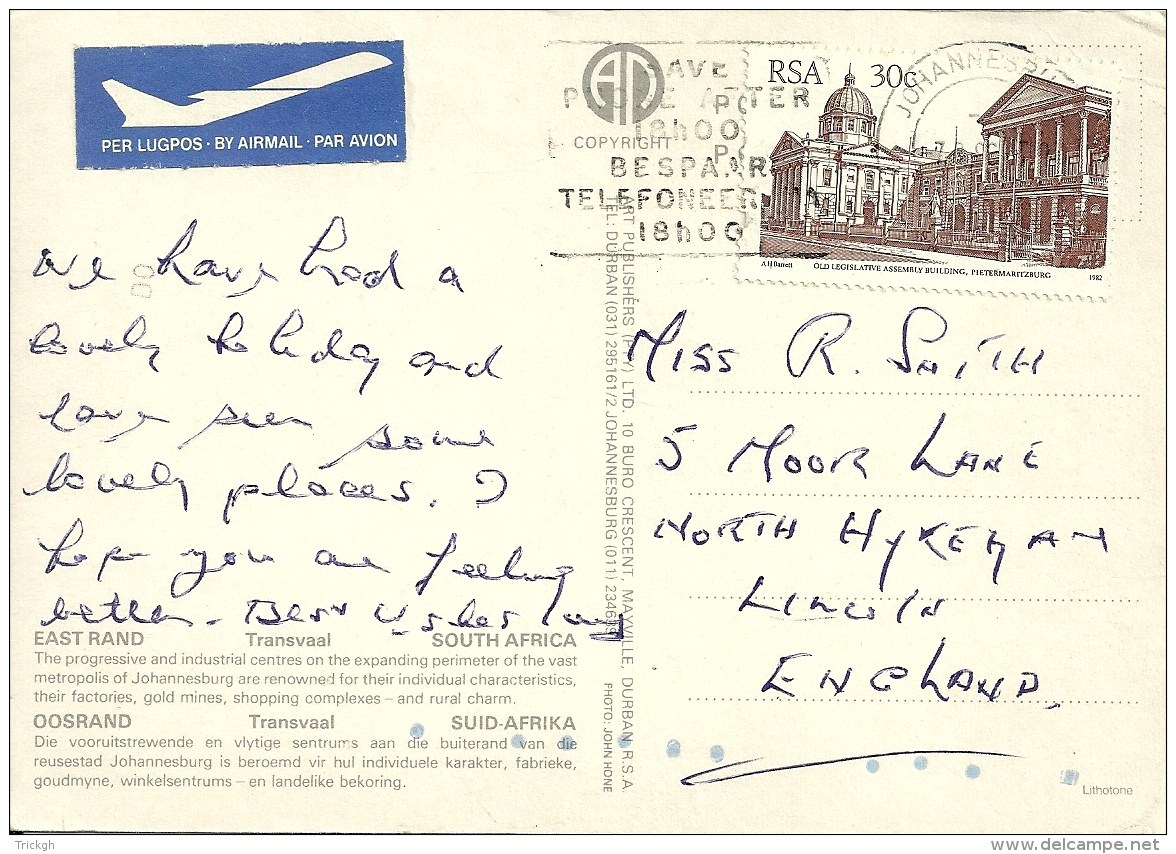 PER LUGPOS · BY AIRMAIL · PAR AVION
SAVE
PHONE AFTER
18h00
BESPAAR
TELEFONEER NA
18h00
COPYRIGHT
RSA 30c
JOHANNESB
A H Barrett OLD LEGISLATIVE ASSEMBLY BUILDING, PIETERMARITZBURG 1982
We have had a
lovely holiday and
have seen some
lovely places. I
hope you are feeling
better. Best Wishes
MISS R. SMITH
5 MOOR LANE
NORTH HYKEHAM
LINCOLN
ENGLAND.
EAST RAND Transvaal SOUTH AFRICA
The progressive and industrial centres on the expanding perimeter of the vast
metropolis of Johannesburg are renowned for their individual characteristics,
their factories, gold mines, shopping complexes – and rural charm.
OOSRAND Transvaal SUID-AFRIKA
Die vooruitstrewende en vlytige sentrums aan die buiterand van die
reusestad Johannesburg is beroemd vir hul individuele karakter, fabrieke,
goudmyne, winkelsentrums – en landelike bekoring.
ART PUBLISHERS (PTY) LTD. 10 BURO CRESCENT, MAYVILLE, DURBAN R.S.A.
TEL: DURBAN (031) 295161/2 JOHANNESBURG (011)
PHOTO: JOHN HONE
Lithotone
Trickgh
www.delcampe.net